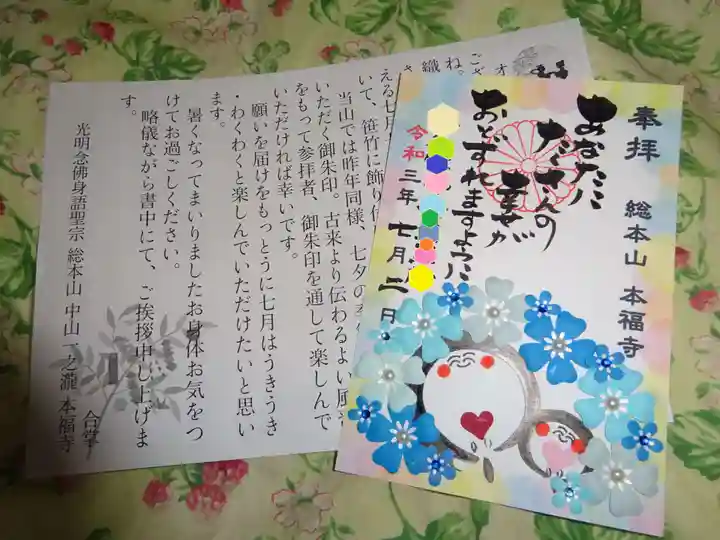 奉拝
総本山 本福寺
あなたに
たくさんの
幸せが
おとずれますように
令和三年 七月二日
える七月
いて、笹竹に飾り
当山では昨年同様、七夕の
いただく御朱印。古来より伝わるよい風
をもって参拝者、御朱印を通して楽しんで
いただければ幸いです。
願いを届けをもっとうに七月はうきうき
・わくわくと楽しんでいただけたいと思い
ます。
暑くなってまいりましたお身体お気をつ
けてお過ごしください。
略儀ながら書中にて、ご挨拶申し上げま
す。
合掌
光明念佛身語聖宗 総本山 中山一之瀧 本福寺